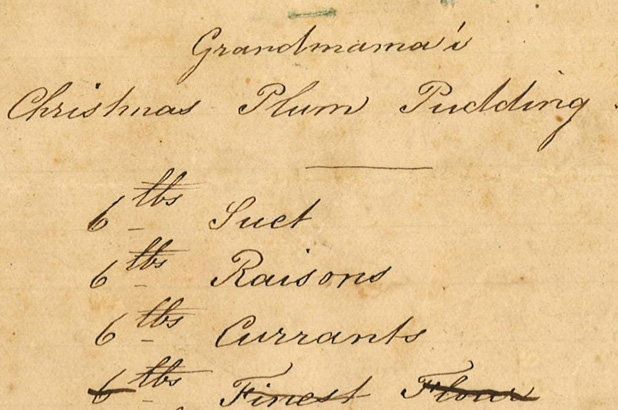 Grandmama's
Christmas Plum Pudding
6 lbs Suet
6 lbs Raisons
6 lbs Currants
6 lbs Finest Flour